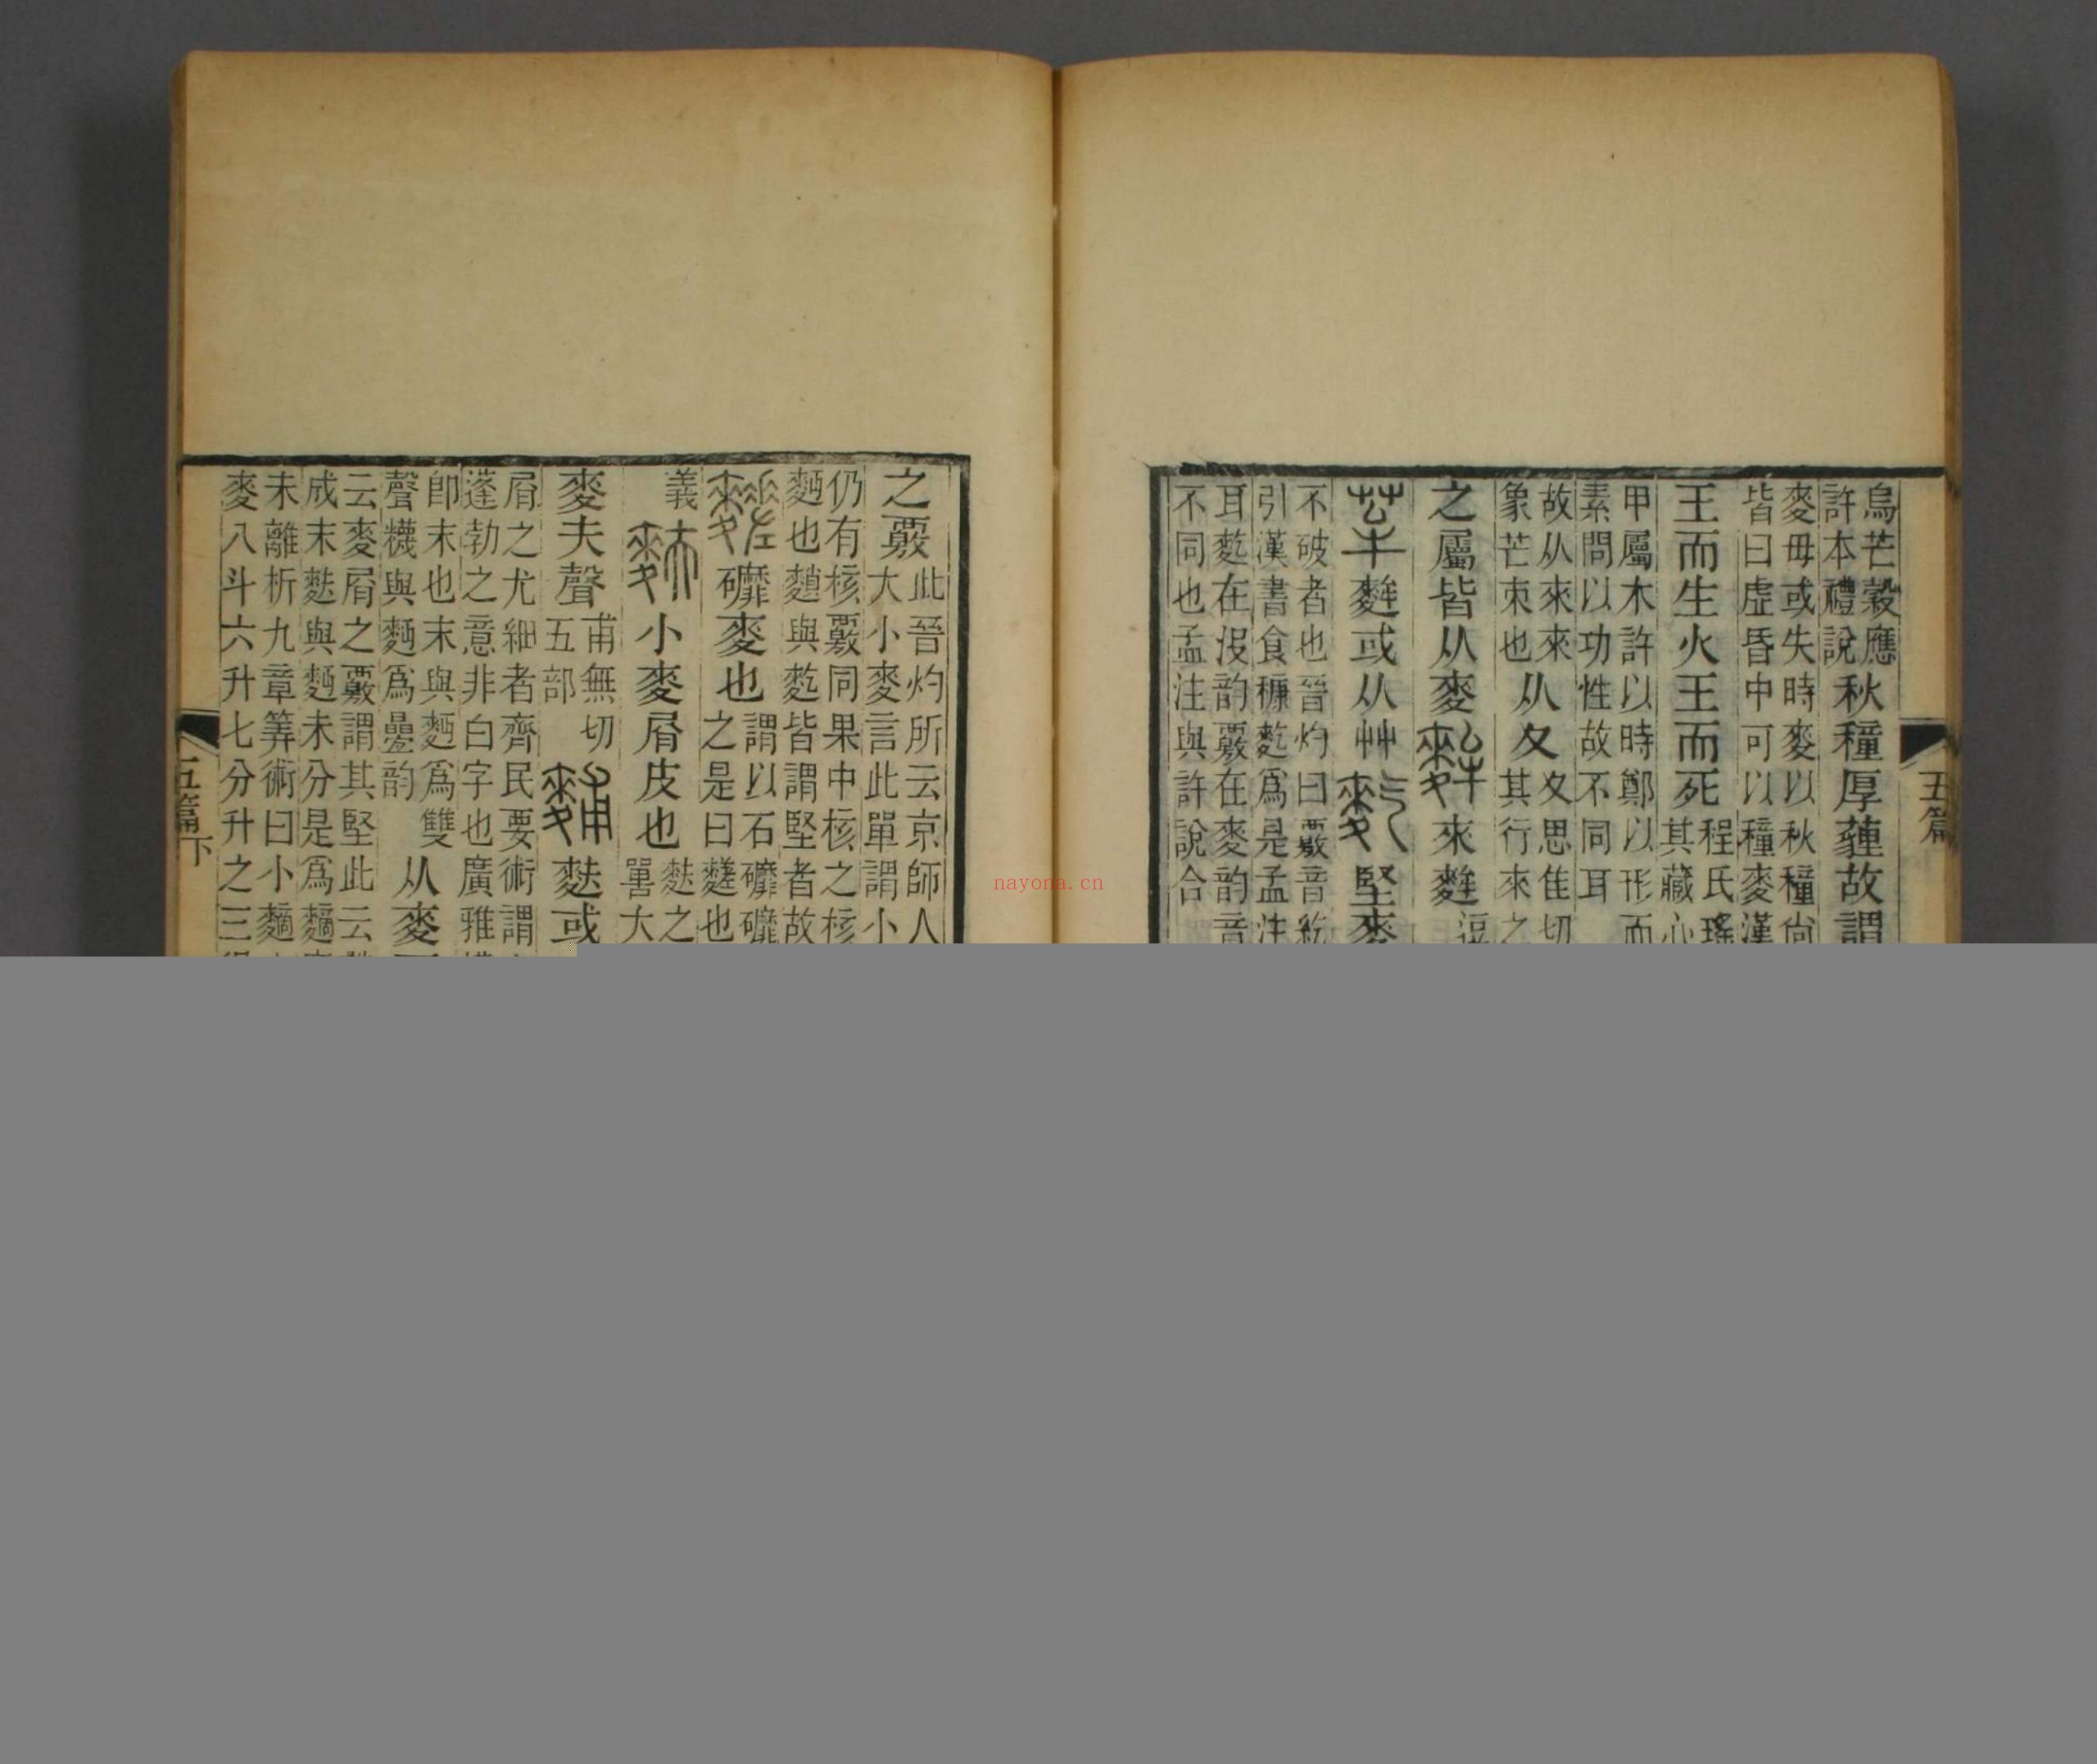 烏芒穀應
許本禮說
秋穜厚薶故謂
麥毋或失時麥以秋穜尙
皆曰虛昏中可以穜麥漢
王而生火王而死
程氏瑤
其藏心
甲屬木許以時鄭以形而
素問以功性故不同耳
故从來來
象芒朿也
从夊
夊思隹切
其行來之
之屬皆从麥
來麰
麰或从艸
堅麥
不破者也晉灼曰覈音紇
引漢書食穅麧爲是孟注
耳麧在沒韵覈在麥韵音
不同也孟注與許說合
五篇
之覈
此晉灼所云京師人
大小麥言此單謂小
仍有核覈同果中核之核
麪也䴲與麧皆謂堅者故
䃺麥也
謂以石䃺䃺
之是曰䴾也
義
小麥屑皮也
麩之
詈大
麥夫聲
甫無切
五部
麩或
屑之尤細者齊民要術謂
蓬勃之意非白字也廣雅
卽末也末與麪爲雙
聲糗與麪爲曡韵
从麥
云麥屑之覈謂其堅此云
成末麩與麪未分是爲䴢
未離析九章筭術曰小䴢
麥八斗六升七分升之三
五篇下
nayona.cn